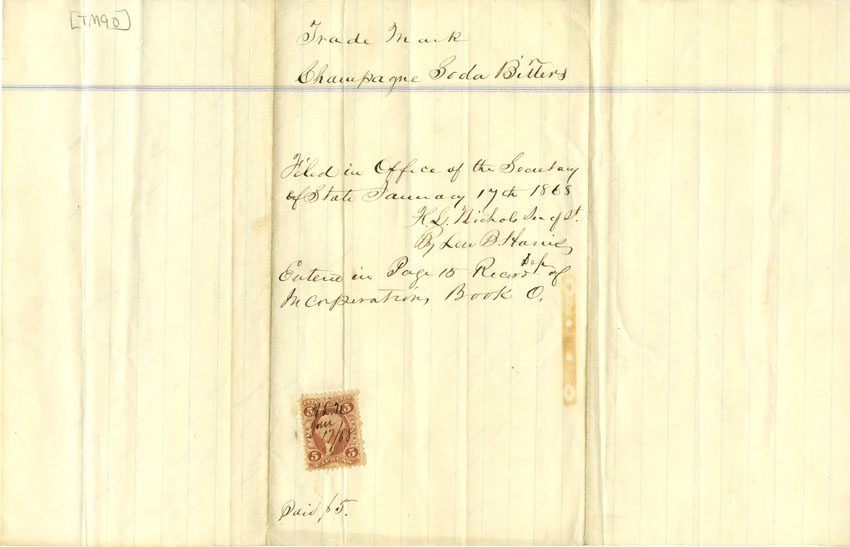 [TM90]
Trade Mark
Champagne Soda Bitters
Filed in Office of the Secretary
of State January 17th 1868
H.L. Nichols Sec of St.
By Lew B. Harris
Dep
Enterd in Page 15 Record of
Incorporations Book O.
H L N
Jan
17/68
5 5
5 5
Paid $5.